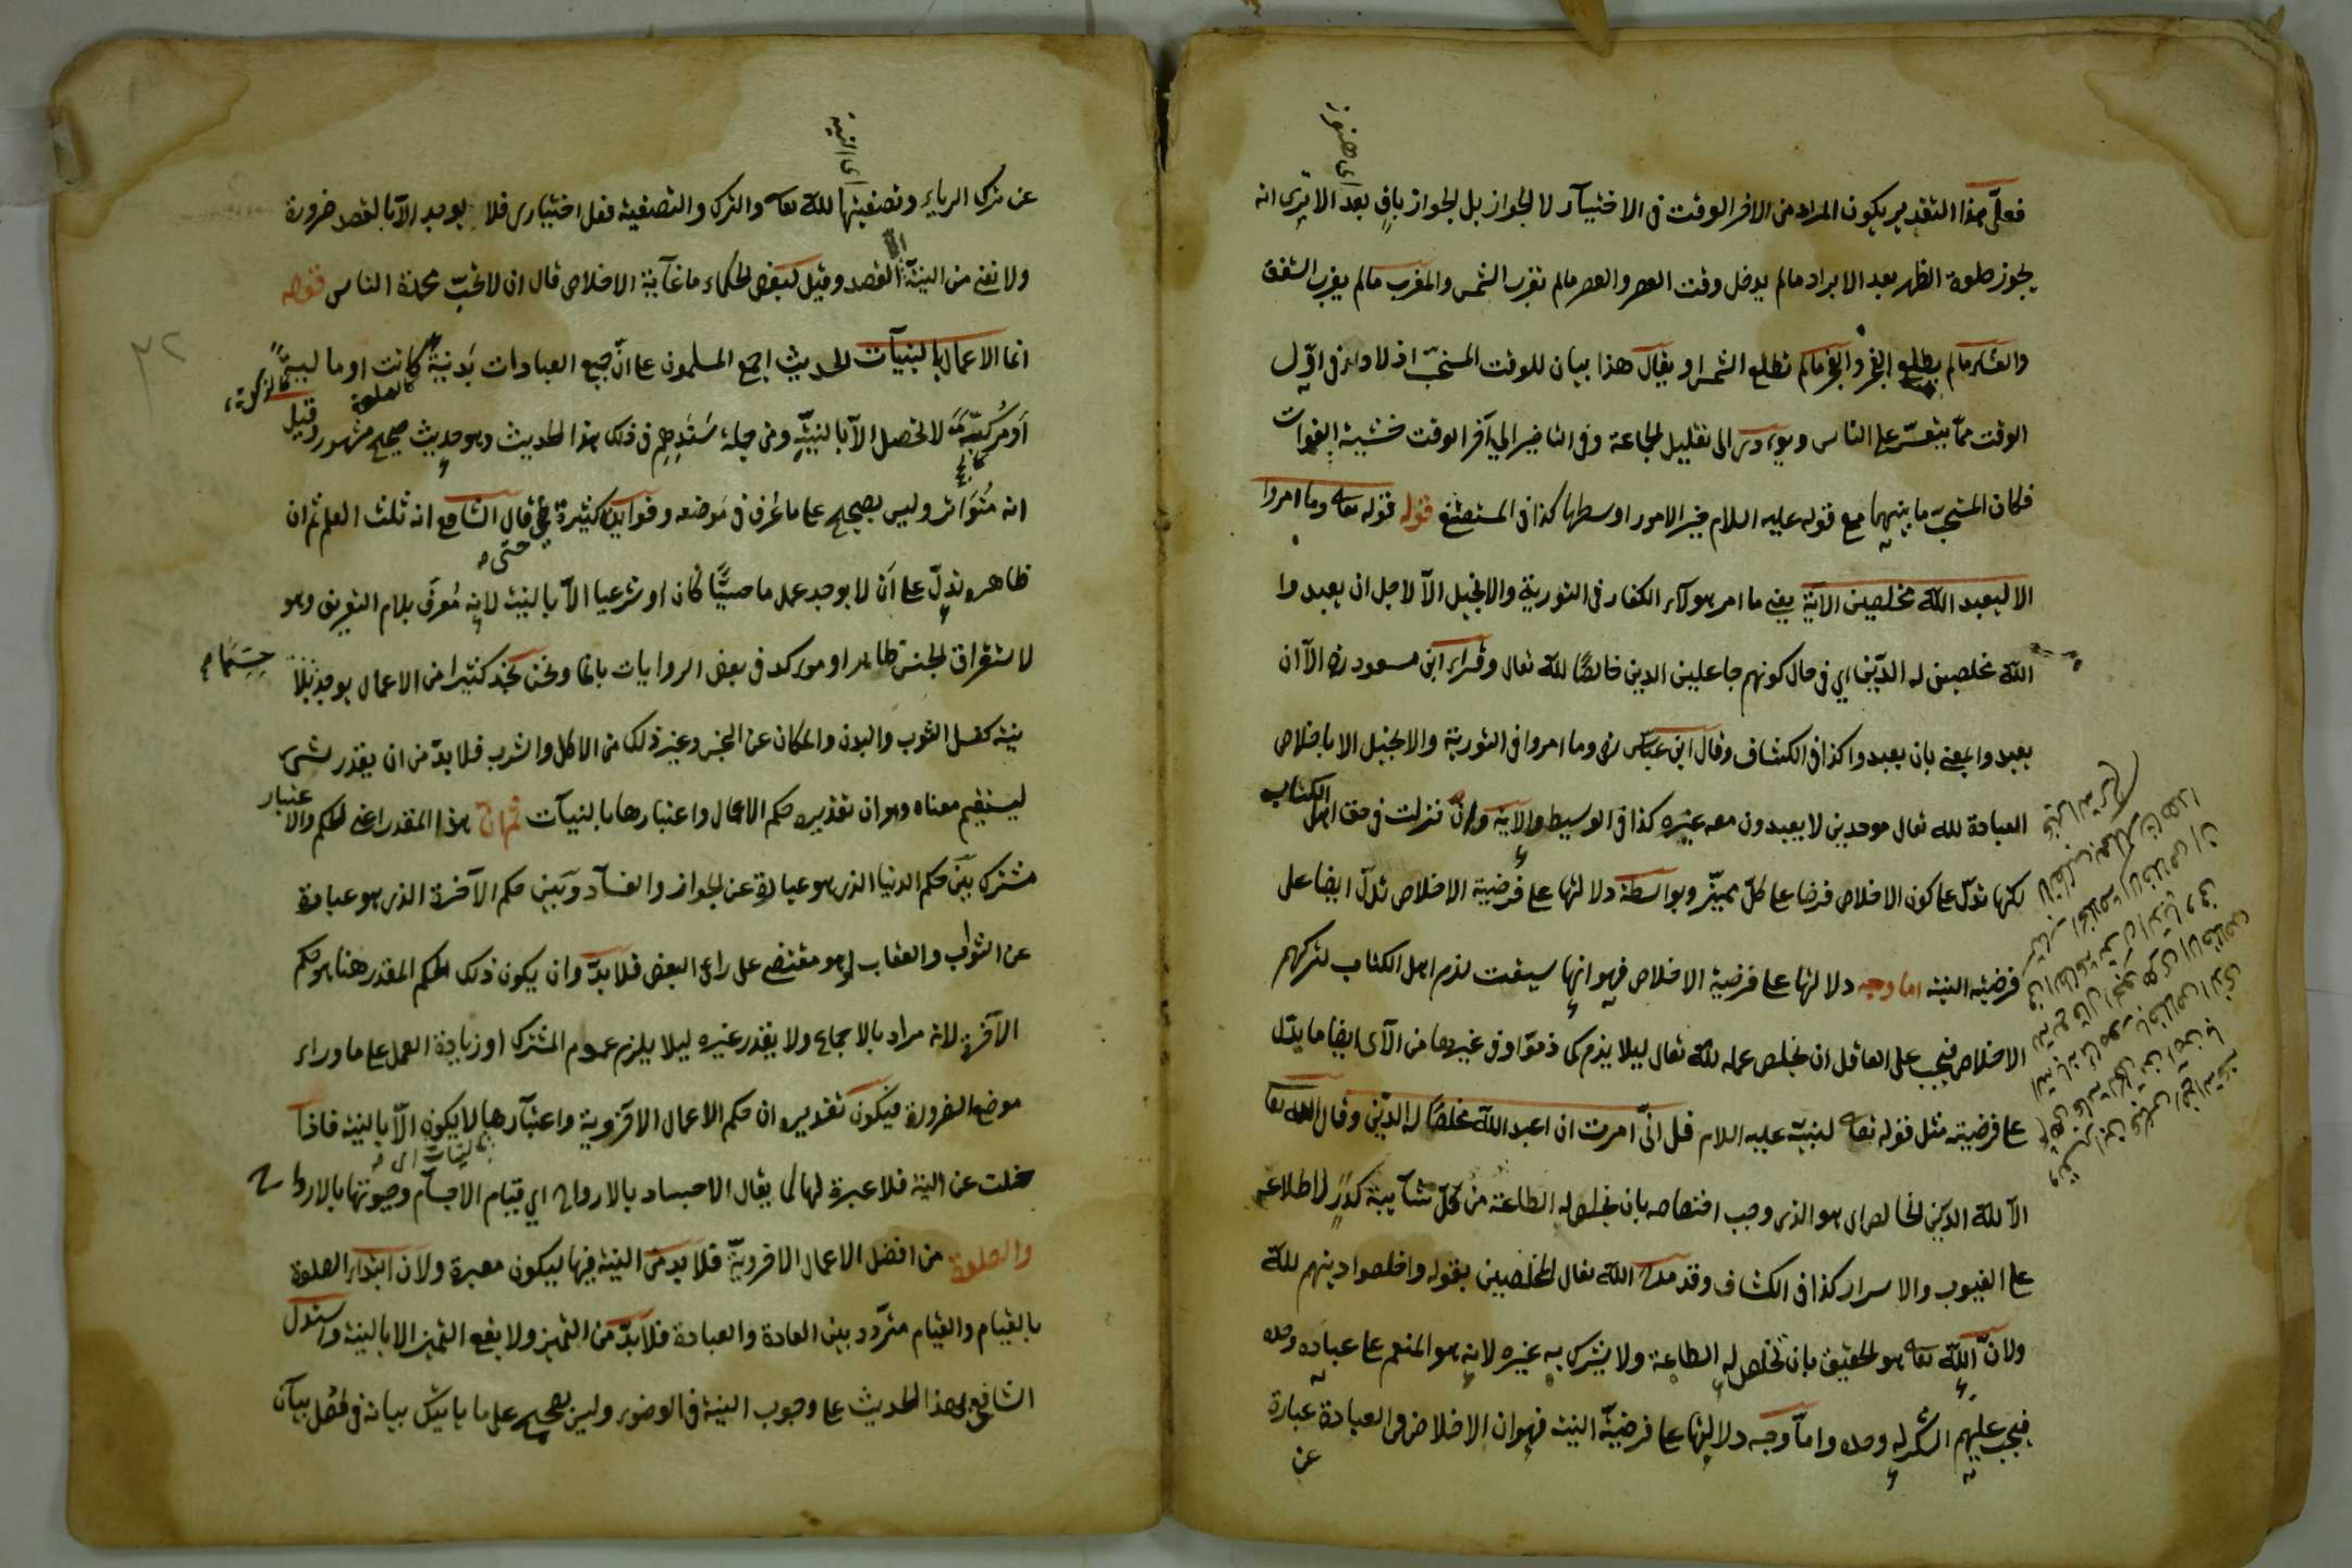 فعلى هذا التقدير يكون المراد من الاخر الوقت فى الاختيار لا الجواز بل الجواز باق بعد الا ترى انه
يجوز صلوة الظهر بعد الابراد ما لم يدخل وقت العصر والعصر ما لم تغرب الشمس والمغرب ما لم يغرب الشفق
والعشاء ما لم يطلع الفجر والفجر ما لم تطلع الشمس او يقال هذا بيان للوقت المستحب اذ لاداء فى اول
الوقت مما يتعسر على الناس ويؤدى الى تقليل الجماعة وفى التاخير الى آخر الوقت خشية الفوات
فكان المستحب ما بينهما مع قوله عليه السلام خير الامور اوسطها كذا فى المستصفى قوله قوله تعا وما امروا
الا ليعبدوا الله مخلصين الآية يعنى ما امر هولآء الكفار فى التورية والانجيل الا لاجل ان يعبدوا
الله مخلصين له الدين اي فى حال كونهم جاعلين الدين خالصا لله تعالى وقراء ابن مسعود رض الا ان
يعبدوا يعنى بان يعبدوا كذا فى الكشاف وقال ابن عباس رض وما امروا فى التورية والانجيل الا باخلاص
العبادة لله تعالى موحدين لا يعبدون معه غيره كذا فى الوسيط والآية وان نزلت فى حق اهل الكتاب
لكنها تدل على كون الاخلاص فرضا على كل مميز وبواسطة دلالتها على فرضية الاخلاص تدل ايضا على
فرضية النية اما وجه دلالتها على فرضية الاخلاص فهو انها سيقت لذم اهل الكتاب لتركهم
الاخلاص فيجب على العاقل ان يخلص عمله لله تعالى ليلا يذم كما ذموا وفى غيرها من الآى ايضا ما يدل
على فرضيته مثل قوله تعا لنبيه عليه السلام قل انى امرت ان اعبد الله مخلصا له الدين وقال الله تعا
الا لله الدين الخالص اى هو الذى وجب اختصاصه بان يخلص له الطاعة من كل شآيبة كدر لاطلاعه
على الغيوب والاسرار كذا فى الكشاف وقد مدح الله تعالى المخلصين بقوله واخلصوا دينهم لله
ولان الله تعا هو الحقيق بان تخلص له الطاعة ولا يشرك به غيره لانه هو المنعم على عباده وحده
فيجب عليهم الشكر له وحده واما وجه دلالتها على فرضية النية فهو ان الاخلاص فى العبادة عبارة
عن
عن ترك الرياء وتصفيتها لله تعا والترك والتصفية فعل اختيارى فلا يوجد الا بالقصد ضرورة
اى النية
ولا نعنى من النية الا القصد وقيل لبعض الحكماء ما غاية الاخلاص قال ان لا تحب محمدة الناس قوله
انما الاعمال بالنيات الحديث اجمع المسلمون على ان جميع العبادات بدنية كانت او مالية
كالصلوة
كالزكوة
او مركبة لا تحصل الا بالنية ومن جملة سندهم فى ذلك هذا الحديث وهو حديث صحيح مشهور وقيل
كالحج
انه متواتر وليس بصحيح على ما عرف فى موضعه وفوايده كثيرة حتى قال الشافع انه ثلث العلم ثم ان
ظاهره يدل على ان لا يوجد عمل ما حسيا كان او شرعيا الا بالنية لانه معرف بلام التعريف وهو
لاستغراق الجنس ظاهرا وموكد فى بعض الروايات بانما ونحن نجد كثيرا من الاعمال يوجد بلا
نية كغسل الثوب والبدن والمكان عن النجس وغير ذلك من الاكل والشرب فلا بد من ان يقدر شئ
ليستقيم معناه وهو ان تقديره حكم الاعمال واعتبارها بالنيات ثم ان هذا المقدر اعنى الحكم والاعتبار
مشترك بين حكم الدنيا الذى هو عبارة عن الجواز والفساد وبين حكم الآخرة الذى هو عبارة
عن الثواب والعقاب او هو مقتضى على راى البعض فلا بد وان يكون ذلك الحكم المقدر هنا هو حكم
الآخرة لانه مراد بالاجماع ولا يقدر غيره ليلا يلزم عموم المشترك او زيادة العمل على ما وراء
موضع الضرورة فيكون تقديره ان حكم الاعمال الاخروية واعتبارها لا يكون الا بالنية فاذا
خلت عن النية فلا عبرة لها كما يقال الاجساد بالارواح اي قيام الاجسام وحيوتها بالارواح
والصلوة من افضل الاعمال الاخروية فلا بد من النية فيها ليكون معبرة ولان ابتداء الصلوة
بالقيام والقيام متردد بين العادة والعبادة فلا بد من التميز ولا يقع التميز الا بالنية واستدل
الشافعى بهذا الحديث على وجوب النية فى الوضوء وليس بصحيح على ما ياتيك بيانه فى فصل بيان